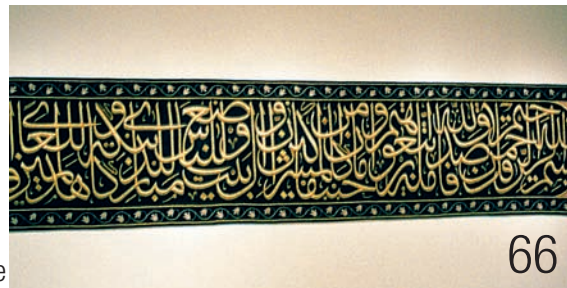 الله الرحمن الرحيم قل صدق الله فاتبعوا ملة إبراهيم حنيفا وما كان من المشركين إن أول بيت وضع للناس للذي ببكة مباركا وهدى للعالمين
66
e